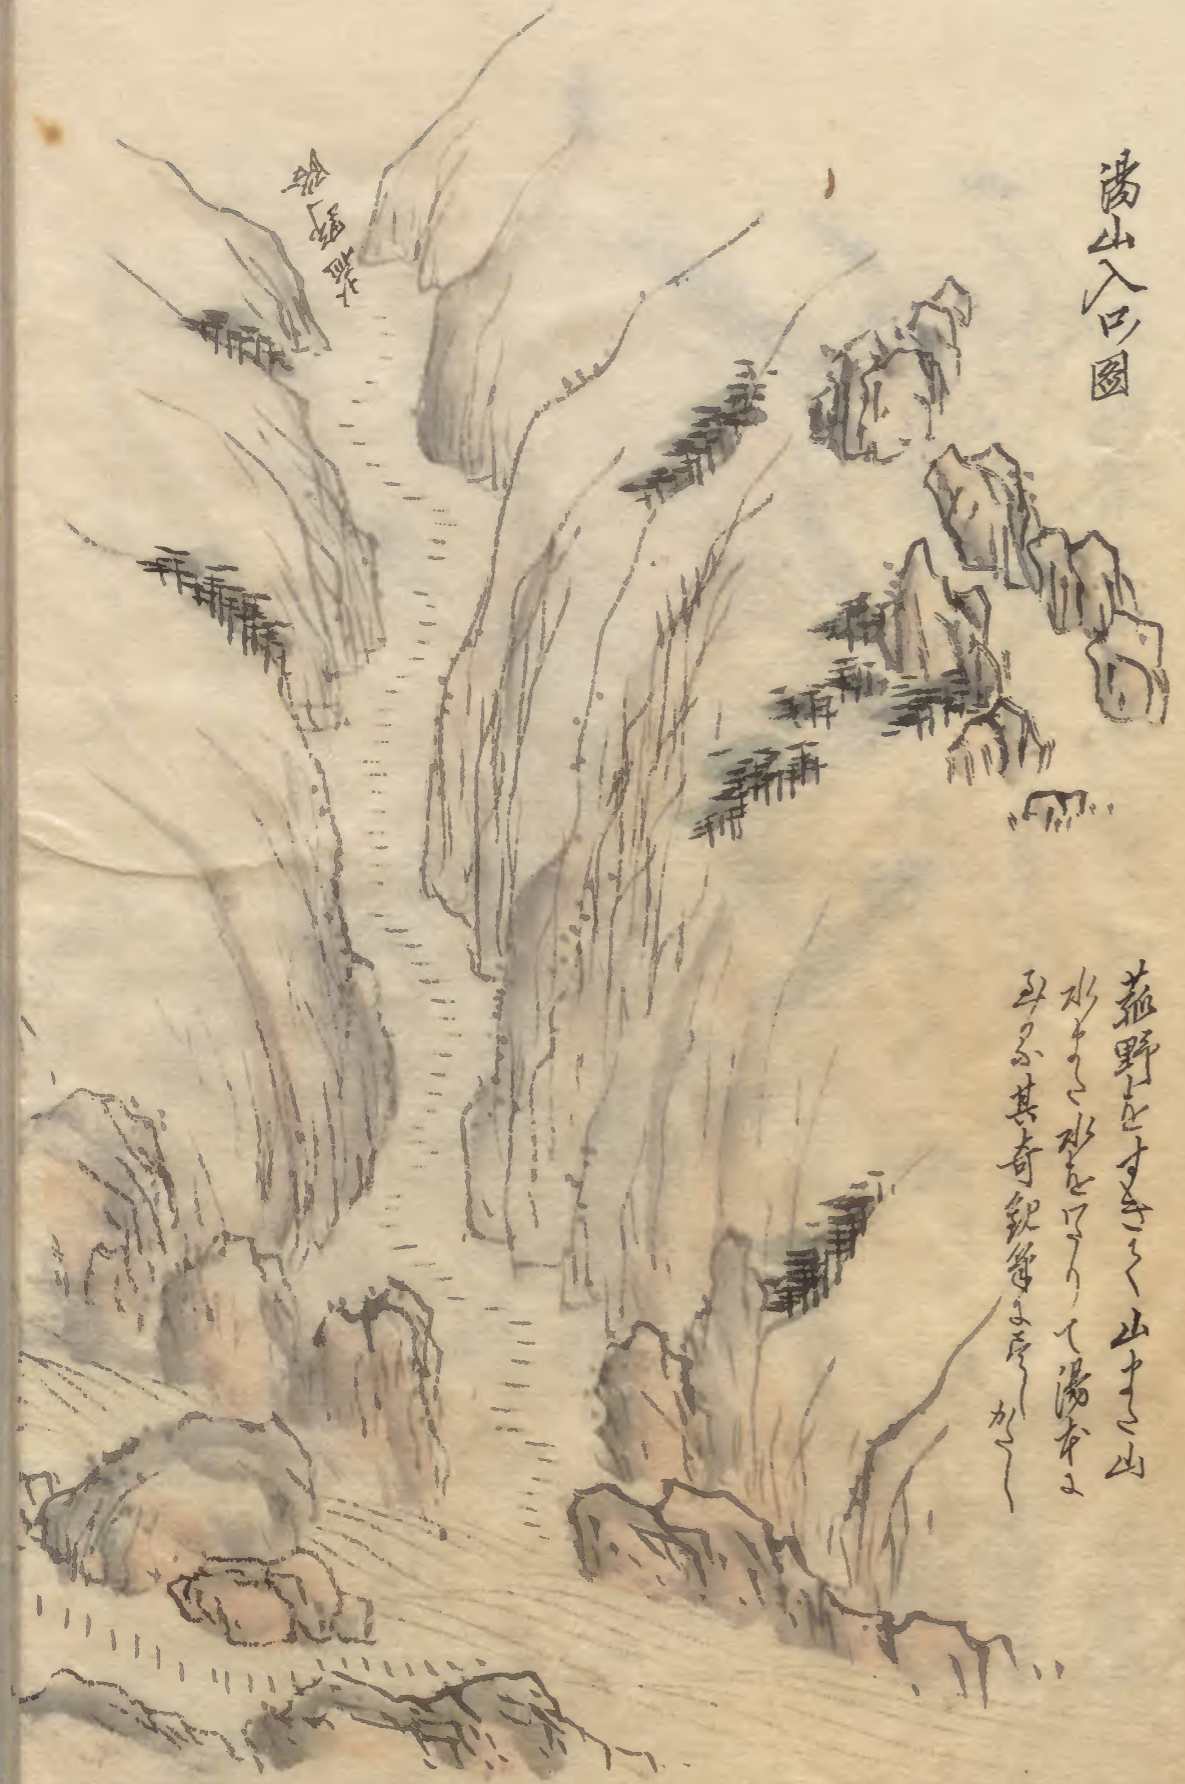 湯山入口圖
菰野をすきて山また山
水また水をわたりて湯本に
至る其奇観筆に尽しかたし